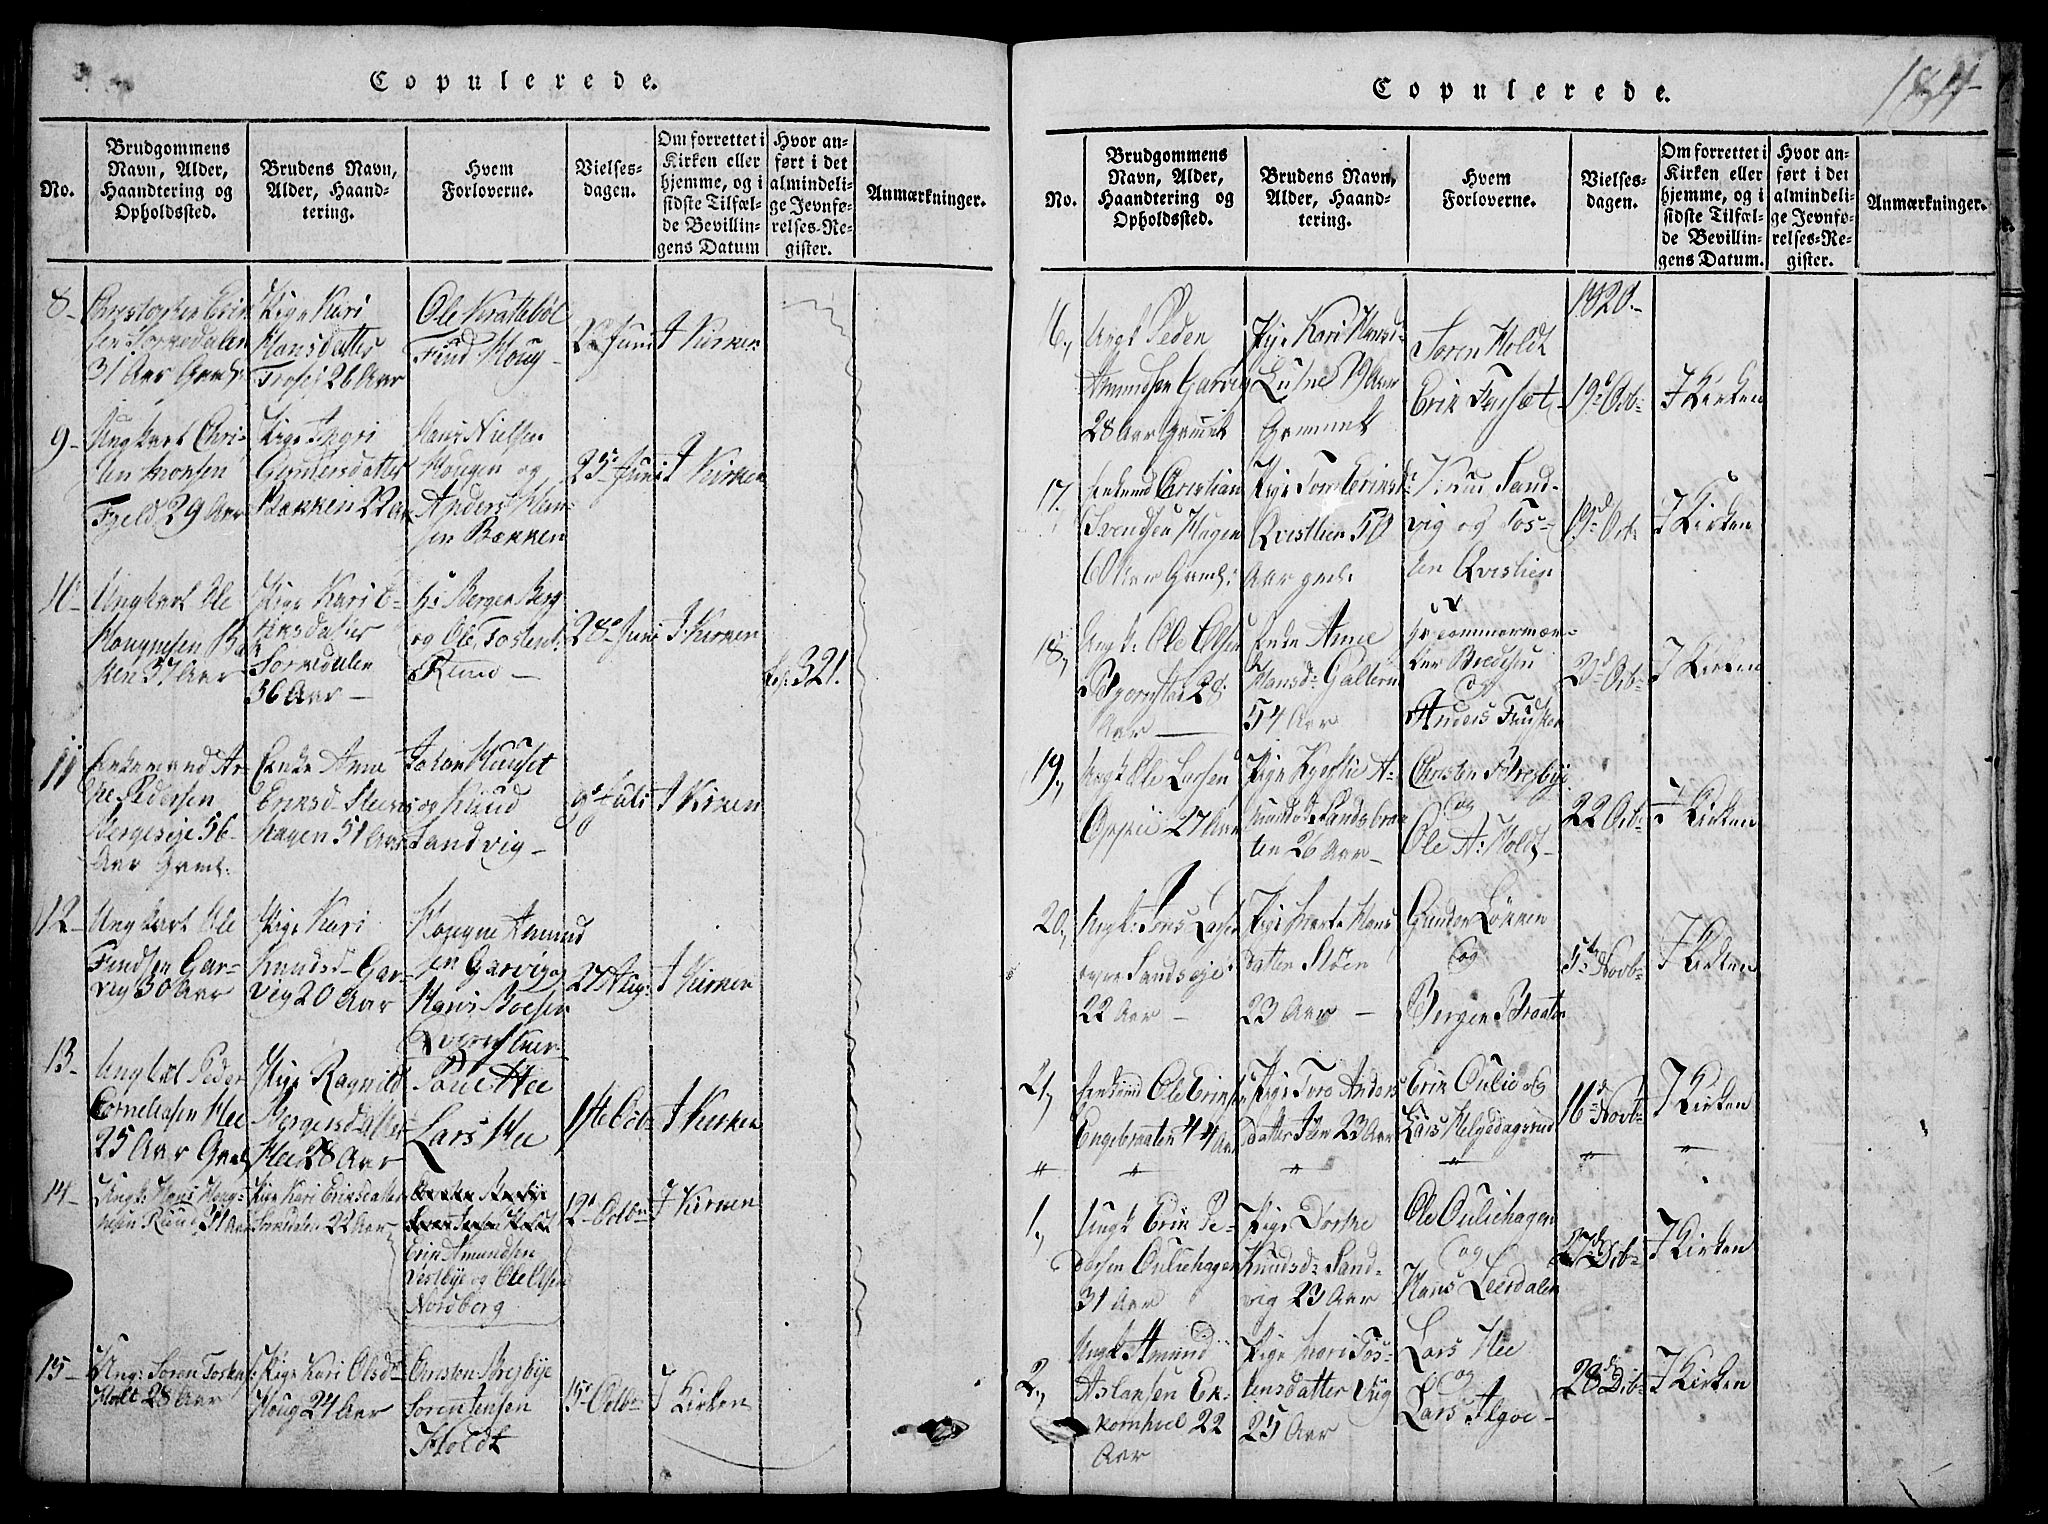 Copulerede.
No.
Brudgommens
Navn, Alder,
Haandtering og
Opholdssted.
Brudens Navn,
Alder, Haand-
tering.
Hvem
Forloverne.
Vielses-
dagen.
Om forrettet i
Kirken eller
hjemme, og i
sidste Tilfæl-
de Bevillin-
gens Datum
Hvor an-
ført i det
almindeli-
ge Jevnfø-
relses-Re-
gister.
Anmærkninger.
8-
sen Torkedalen
31 Aar Gaml:
Pige Kari
Hansdatter
26 Aar
Ole Kratteböl
Find Houg -
Juni
I Kirken
9-
Ungkarl Chri-
sten Monsen
Fjeld 29 Aar
Pige
Gundersdatter
Bakken 22 Aar
Hans Nielsen
Haugen og
Anders Han-
sen Bakken
25 Juni
I Kirken
10-
Ungkarl Ole
ken 37 Aar
Pige Kari E-
riksdatter
Torkedalen
36 Aar -
Hr Bergen Berg
og Ole Tostens:
Ruud -
28 Juni
I Kirken
321.
11
Enkemand Ar-
ne Pedersen
Bergeseje 56
Aar Gaml.
Enke Anne
Eriksd Steens
Hagen 51 Aar
Johan Kuuset
og Knud
Sandvig -
9 Juli
I Kirken
12-
Ungkarl Ole
Findsen Gar-
vig 30 Aar
Pige Kari
Knudsd Gar-
vig 20 Aar
Amund
sen Garvig og
Hans Boesen
27 Aug:
I Kirken
13-
Ungkarl Peder
Cornelius en Hee
25 Aar Gaml
Pige Ragnild
Bergersdatter
Hee 28 Aar
Hee
Lars Hee
14 Octb
I Kirken
14-
Ungk: Hans
Ruud 31 Aar
Pige Kari Eriksdatter
22 Aar
Erik Amundsen
Vestbye og Ole Olsen
Nordberg
12 Octbr
I Kirken
15-
Ung: Soren Tosten
Holt 28 Aar
Pige Kari Olsd
Houg 24 Aar
Christen Bresbÿe
Soren Jensen
Holdt
15 Octbr
I Kirken
Copulerede.
184
No.
Brudgommens
Navn, Alder,
Haandtering og
Opholdssted.
Brudens Navn,
Alder, Haand-
tering.
Hvem
Forloverne.
Vielses-
dagen.
Om forrettet i
Kirken eller
hjemme, og i
sidste Tilfæl-
de Bevillin-
gens Datum.
Hvor an-
ført i det
almindeli-
ge Jevnfø-
relses-Re-
gister.
Anmærkninger.
1820.-
16,
Ungk Peder
Amundsen Garvig
28 Aar Gammel
Pige Kari Hansd
Lusne 19 Aar
Gammel
Soren Holdt
Erik Fauset
19 Octb:
I Kirken
17.
Enkemd Christian
Svendsen Hagen
60 Aar Gaml:
Pige Toro Eriksd
Qvistlien 50
Aar gml:
Knud Sand-
vig og Tos-
ten Qvistlien
19 Octb
I Kirken
18,
Ungk: Ole Olsen
28
Aar
Enke Anne
Hansd: Galteru
54 Aar
Bredesen
og
Anders
Octb
I Kirken
19,
Ungk Ole Larsen
27 Aar
Pige Kjerstie A-
mundsd Sandsbraa
ten 26 Aar -
Christen Bresbÿe
og
Ole A: Holdt-
22 Octb
I Kirken
20,
Ungk: Jens Larsen
Sandseje
22 Aar -
Pige Marte Hans
datter Stöen
23 Aar -
Gunder Lökken
og
Bergen Braaten
5 Novb
I Kirken
21,
Enkemd Ole Eriksen
Engebraaten 44 Aar
Pige Toro Anders
datter Iten 23 Aar
Erik Oulie og
Lars Helgedagsrud
16 Novb
I Kirken
" " " " "
1,
Ungk Erik Pe-
dersen Ouliehagen
31 Aar
Pige Dorthe
Knudsd Sand-
vig 23 Aar
Ole Ouliehagen
og
Hans Leerdalen
27 Decb
I Kirken
2,
Ungk Amund
Aslaksen Ek-
kornhoel 22
Aar
Pige Mari Tos-
tensdatter Viig
25 Aar
Lars Hee
og
Lars Algoe-
28 Decb
I Kirken